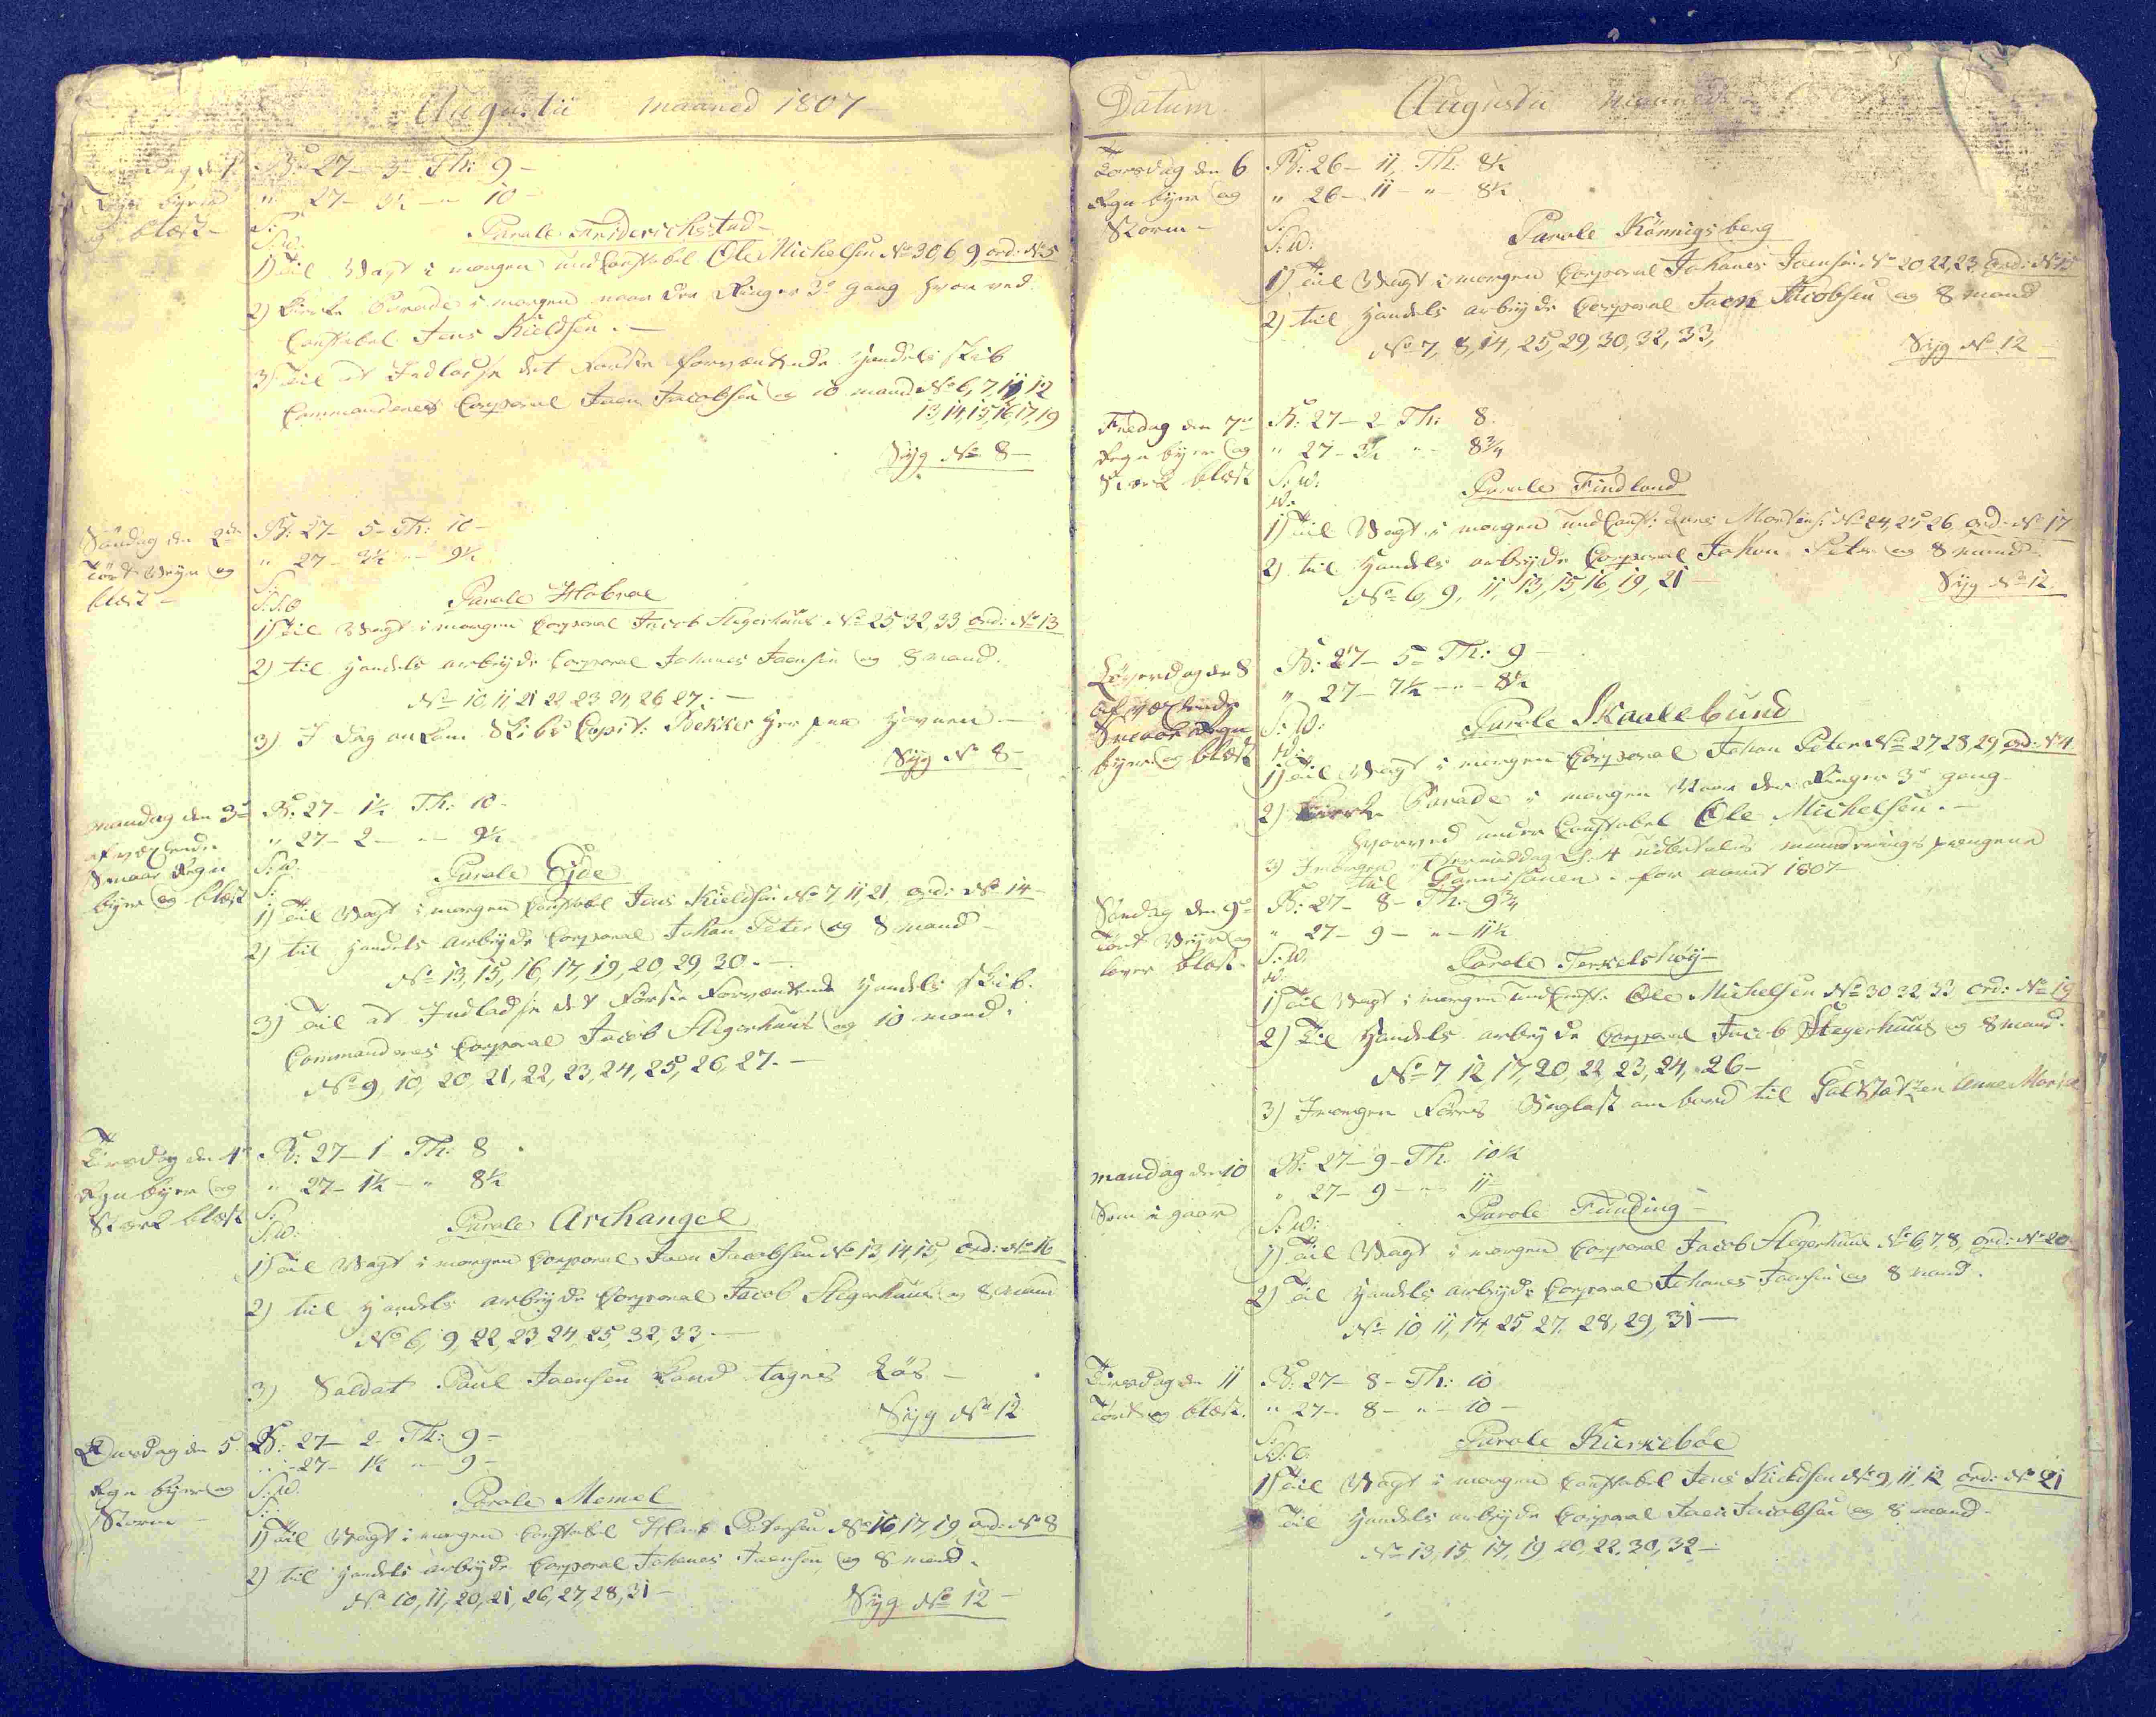 Augustii maaned 1807
dag d 1.
Regn byer
og blæst -
B: 27 - 3 - Th: 9 -
" 27 - 3½ - " 10 -
S:
S:W:
Parole Friderichstad -
1) Til Vagt i morgen und Constabel Ole Michelsen No 30, 6, 9, ord: No 5
2) Kirke Parade i morgen naar der Ringes 3de gang hvor ved
Constabel Jens Kieldsen. -
3) Til at Indladse det første forventende Handels skib
Commanderes Corporal Joen Jacobsen og 10 mand No 6, 7, 11, 12
13, 14, 15, 16, 17, 19
Syg No 8 -
Söndag den 2den
Tört Veyr og
blæst -
B: 27 - 5 - Th: 10 -
" 27 - 3½ - " 9½
S:
S:S:O
Parole Hobroe
1) Til Vagt i morgen Corporal Jacob Stegerhuus No 25, 32, 33 ord: No 13
2) til Handels arbeyde Corporal Johanes Joensen og 8 mand.
No 10, 11, 21 22 23 24 26 27. -
3) I dag ankom Skibs Capit: Bekker her paa Havnen. -
Syg No 8 -
mandag den 3de
afvexlende
Smaae Regn
byer og blæst
B: 27 - 1½ Th: 10 -
" 27 - 2 - " 9½
S:W:
S:
Parole Eyde
1) Til Vagt i morgen Constabel Jens Kieldsen No 7, 11, 21, ord: No 14 -
2) til Handels arbeyde Corporal Johan Peter og 8 mand -
No 13, 15, 16, 17, 19, 20, 29, 30. -
3) Til at Indladse det Förste Forventende Handels skib.
Commanderes Corporal Jacob Stegerhuus og 10 mand.
No 9, 10, 20, 21, 22, 23, 24, 25, 26, 27. -
Tirsdag den 4de
Regn byer og
Stærk blæst
B: 27 - 1 Th: 8
" 27 - 1½ - " 8½
S:
S:W:
Parole Archangel
1) Til Vagt i morgen Corporal Joen Jacobsen No 13, 14, 15, ord: No 16
2) til Handels arbeyde Corporal Jacob Stegerhuus og 8 mand
No 6, 9, 22, 23, 24, 25, 32, 33. -
3) Soldat Poul Joensen Land tages Lös -
Syg No 12
Onsdag den 5
Regn byer og
Storm -
B: 27 - 2 Th: 9 -
" 27 - 1½ " 9 -
S:W:
S:
Parole Memel
1) Til Vagt i morgen Constabel Hans Petersen No 16 17 19 ord: No 8
2) til Handels arbeyde Corporal Johanes Joensen og 8 mand.
No 10, 11, 20, 21, 26, 27, 28, 31 -
Syg No 12 -
Datum
Augustii maaned
Torsdag den 6
Regn byer og
Storm -
B: 26 - 11, Th: 8½
" 26 - 11 - " 8½
S:
S:W:
Parole Könnigsberg
1) Til Vagt i morgen Corporal Johanes Joensen No 20 22, 23 ord: No 15
2) til Handels arbeyde Corporal Joen Jacobsen og 8 mand
No 7, 8, 14, 25, 29, 30, 32, 33,
Syg No 12
Fredag den 7de
Regn byer og
Stærk blæst
B: 27 - 2 - Th: 8.
" 27 - 3½ " - 8¾
S:W:
W:
Parole Findland
1) Til Vagt i morgen und Const: Mortens: No 24, 25 26 ord: No 17
2) til Handels arbeyde Corporal Johan Peter og 8 mand.
No 6, 9, 11, 13, 15, 16, 19, 21 -
Syg No 12
Löverdag den 8
afvexlende
Smaae Regn
byer og blæst
B: 27 - 5 - Th: 9 -
" 27 - 7½ - " - 8½
S:W:
W:
Parole Skaalebund
1) Til Vagt i morgen Corporal Johan Peter No 27, 28, 29, ord: No 4
2) Kierke Parade i morgen Naar der Ringes 3de gang -
hvorved under Constabel Ole Michelsen. -
3) I morgen Formiddag Kl. 4 udbetales munderings pengene
til Garnisonen for aaret 1807 -
Söndag den 9de
Tört Veyr og
laver blæst.
B: 27 - 8 - Th: 9¾
" 27 - 9 - " - 11½
S:W:
W:
Parole Terkelshöy -
1) Til Vagt i morgen und Const: Ole Michelsen No 30 32, 33 ord: No 19
2) Til Handels arbeyde Corporal Jacob Stegerhuus og 8 mand.
No 7, 12, 17, 20, 22, 23, 24, 26 -
3) I morgen Föres Baglast om bord til Galeasen Anna Maria
mandag den 10
Som i gaar
B: 27 - 9 - Th: 10½
" 27 - 9 - " 11 -
S:W:
Parole Funding -
1) Til Vagt i morgen Corporal Jacob Stegerhuus No 6, 7, 8, ord: No 20
2) Til Handels arbeyde Corporal Johanes Joensen og 8 mand.
No 10, 11, 14, 25, 27, 28, 29, 31 -
Tirsdag den 11
Tört og blæst.
B: 27 - 8 - Th: 10
" 27 - 8 - " - 10 -
S:
S:S:O:
Parole Kierkebøe
1) Til Vagt i morgen Constabel Jens Kieldsen No 9, 11, 12 ord: No 21
Til Handels arbeyde Corporal Joen Jacobsen og 8 mand -
No 13, 15, 17, 19, 20, 22, 30, 32 -